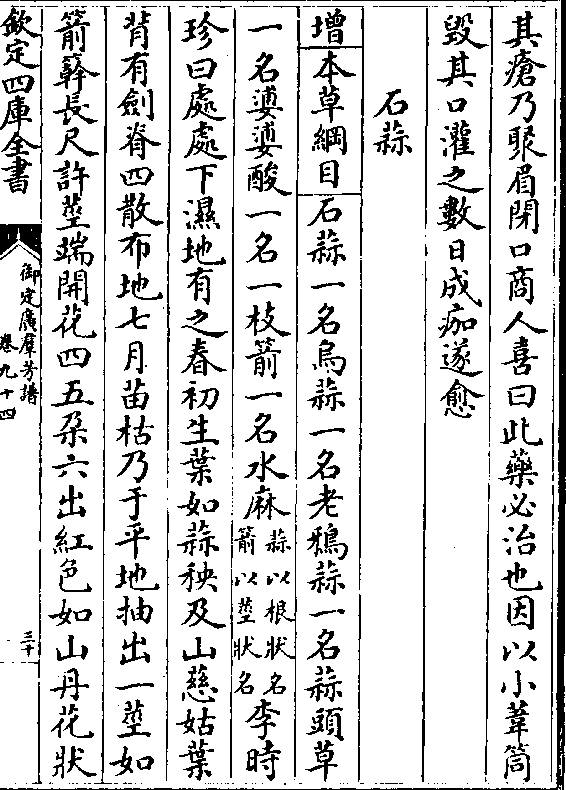 其瘡乃聚眉閉口商人喜曰此藥必治也因以小葦筒
毀其口灌之數日成痂遂愈
石蒜
增本草綱目石蒜一名烏蒜一名老鴉蒜一名蒜頭草
一名婆婆酸一名一枝箭一名水麻蒜以根狀名箭以莖狀名李時
珍曰處處下濕地有之春初生葉如蒜秧及山慈姑葉
背有劍脊四散布地七月苗枯乃于平地抽出一莖如
箭簳長尺許莖端開花四五朶六出紅色如山丹花狀
欽定四庫全書
御定廣羣芳譜
卷九十四
三十